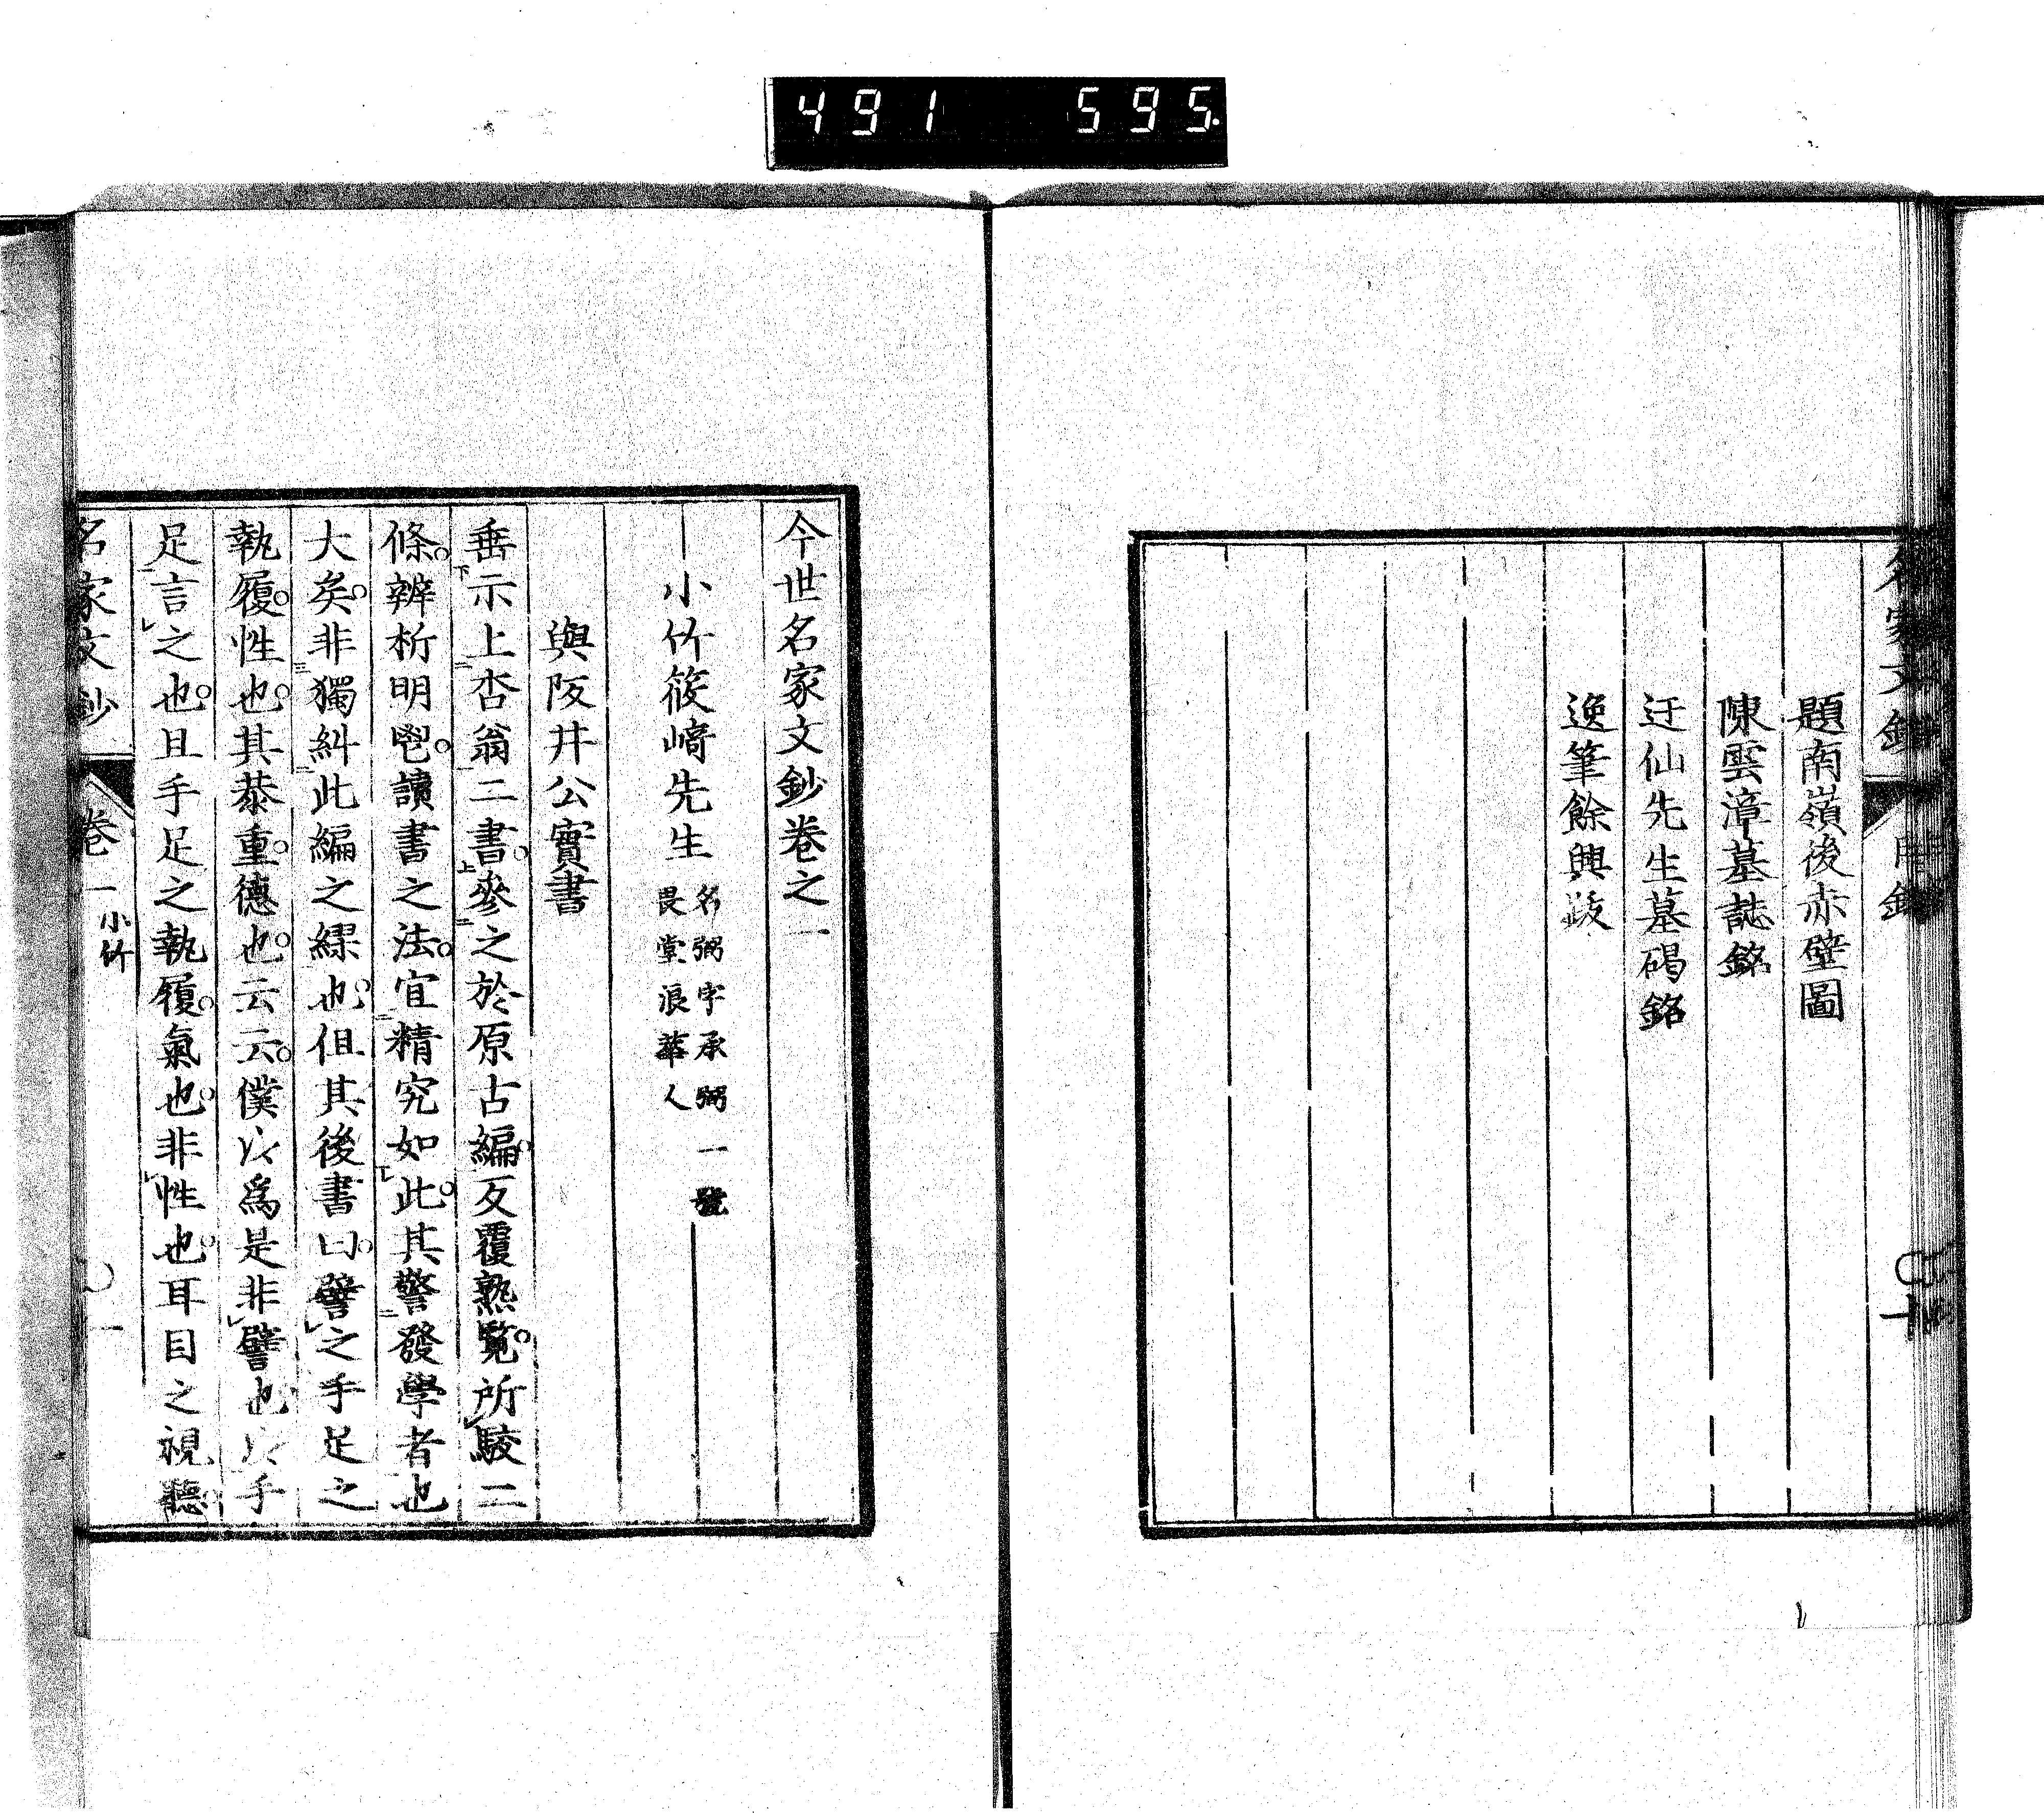 491 595
名家文鈔
題南嶺後赤壁圖
陳雲漳墓誌銘
迂仙先生墓碣銘
逸筆餘興跋
今世名家文鈔卷之一
小竹筱﨑先生
名弼字承弼一號
畏堂浪華人
與阪井公實書
垂示上杏翁二書。參之於原古編。反覆熟覧。所駮二
條。辨析明鬯。讀書之法。宜精究如此。其警發學者也
大矣。非獨糾此編之繆也。但其後書曰。譬之手足之
執履。性也。其恭重。德也。云云。僕以爲是非譬也以手
足言之也。且手足之執履。氣也。非性也。耳目之視聽。
名家文鈔 卷一 小竹 一